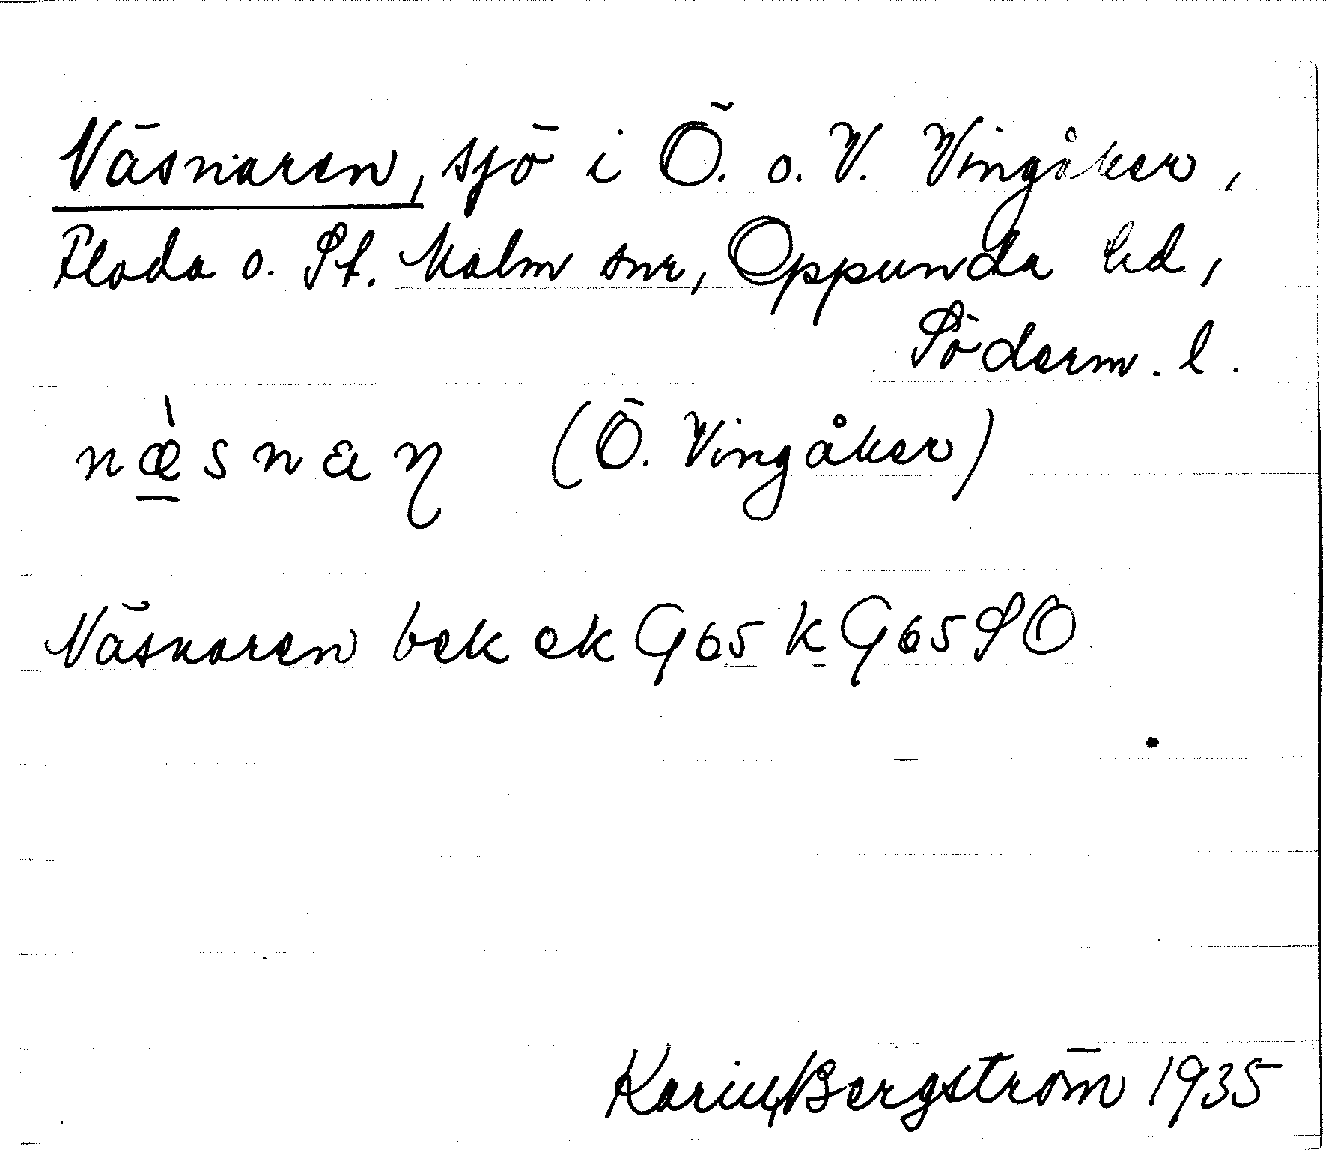 Näsnaren, sjö i Ö. o. V. Vingåker,
Floda o. St. Malm snr, Oppunda hd,
Söderm. l.
næ̠̀snaꞃ (Ö. Vingåker)
Näsnaren bek ek G65 k G65 SO
Karin Bergström 1935